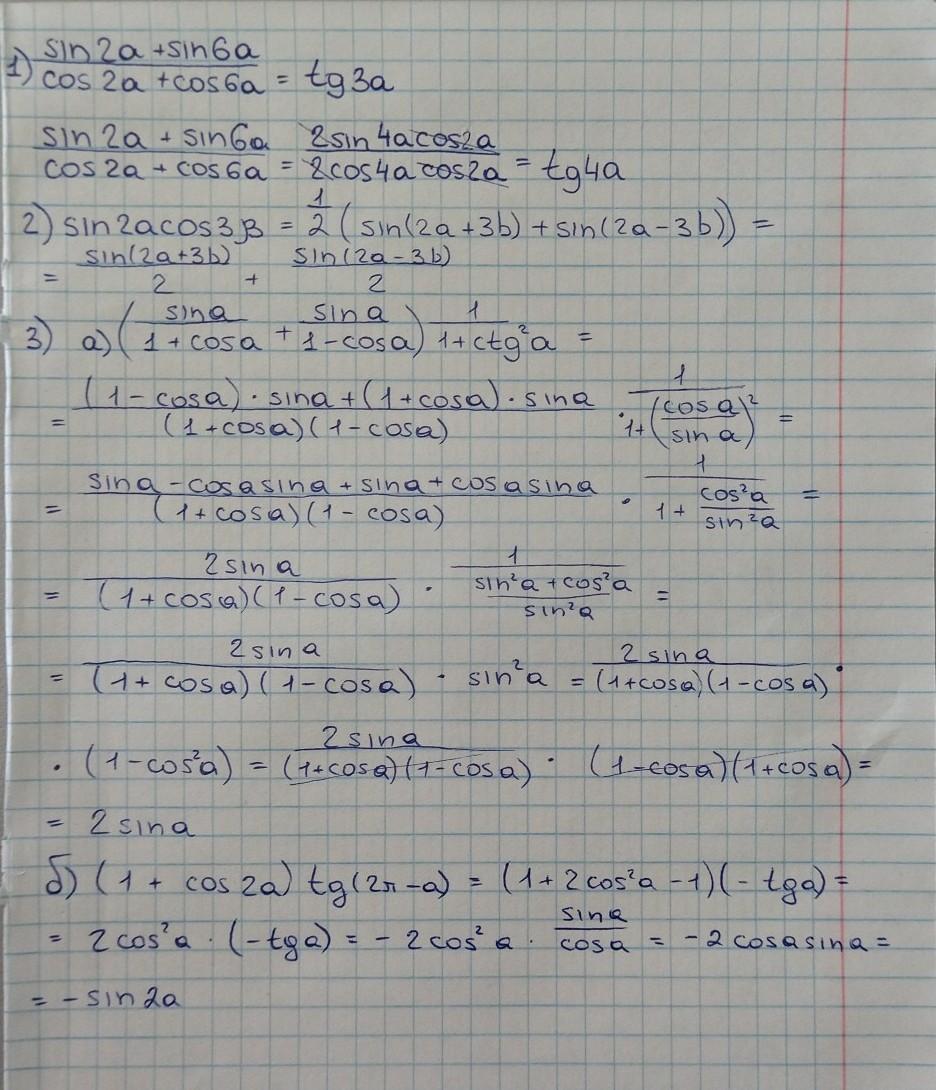 1) (sin2a + sin6a)/(cos2a + cos6a) = tg3a
(sin2a + sin6a)/(cos2a + cos6a) = (2sin4acos2a)/(2cos4acos2a) = tg4a
2) sin2acos3β = 1/2 (sin(2a+3b) + sin(2a-3b)) =
= sin(2a+3b)/2 + sin(2a-3b)/2
3) a) (sina/(1+cosa) + sina/(1-cosa)) 1/(1+ctg²a) =
= ((1-cosa)·sina + (1+cosa)·sina)/((1+cosa)(1-cosa)) · 1/(1+(cosa/sina)²) =
= (sina - cosasina + sina + cosasina)/((1+cosa)(1-cosa)) · 1/(1+cos²a/sin²a) =
= 2sina/((1+cosa)(1-cosa)) · 1/((sin²a+cos²a)/sin²a) =
= 2sina/((1+cosa)(1-cosa)) · sin²a = 2sina/((1+cosa)(1-cosa)) ·
· (1-cos²a) = 2sina/((1+cosa)(1-cosa)) · (1-cosa)(1+cosa) =
= 2sina
б) (1 + cos2a) tg(2π-a) = (1+2cos²a-1)(-tga) =
= 2cos²a · (-tga) = -2cos²a · sina/cosa = -2cosasina =
= -sin2a